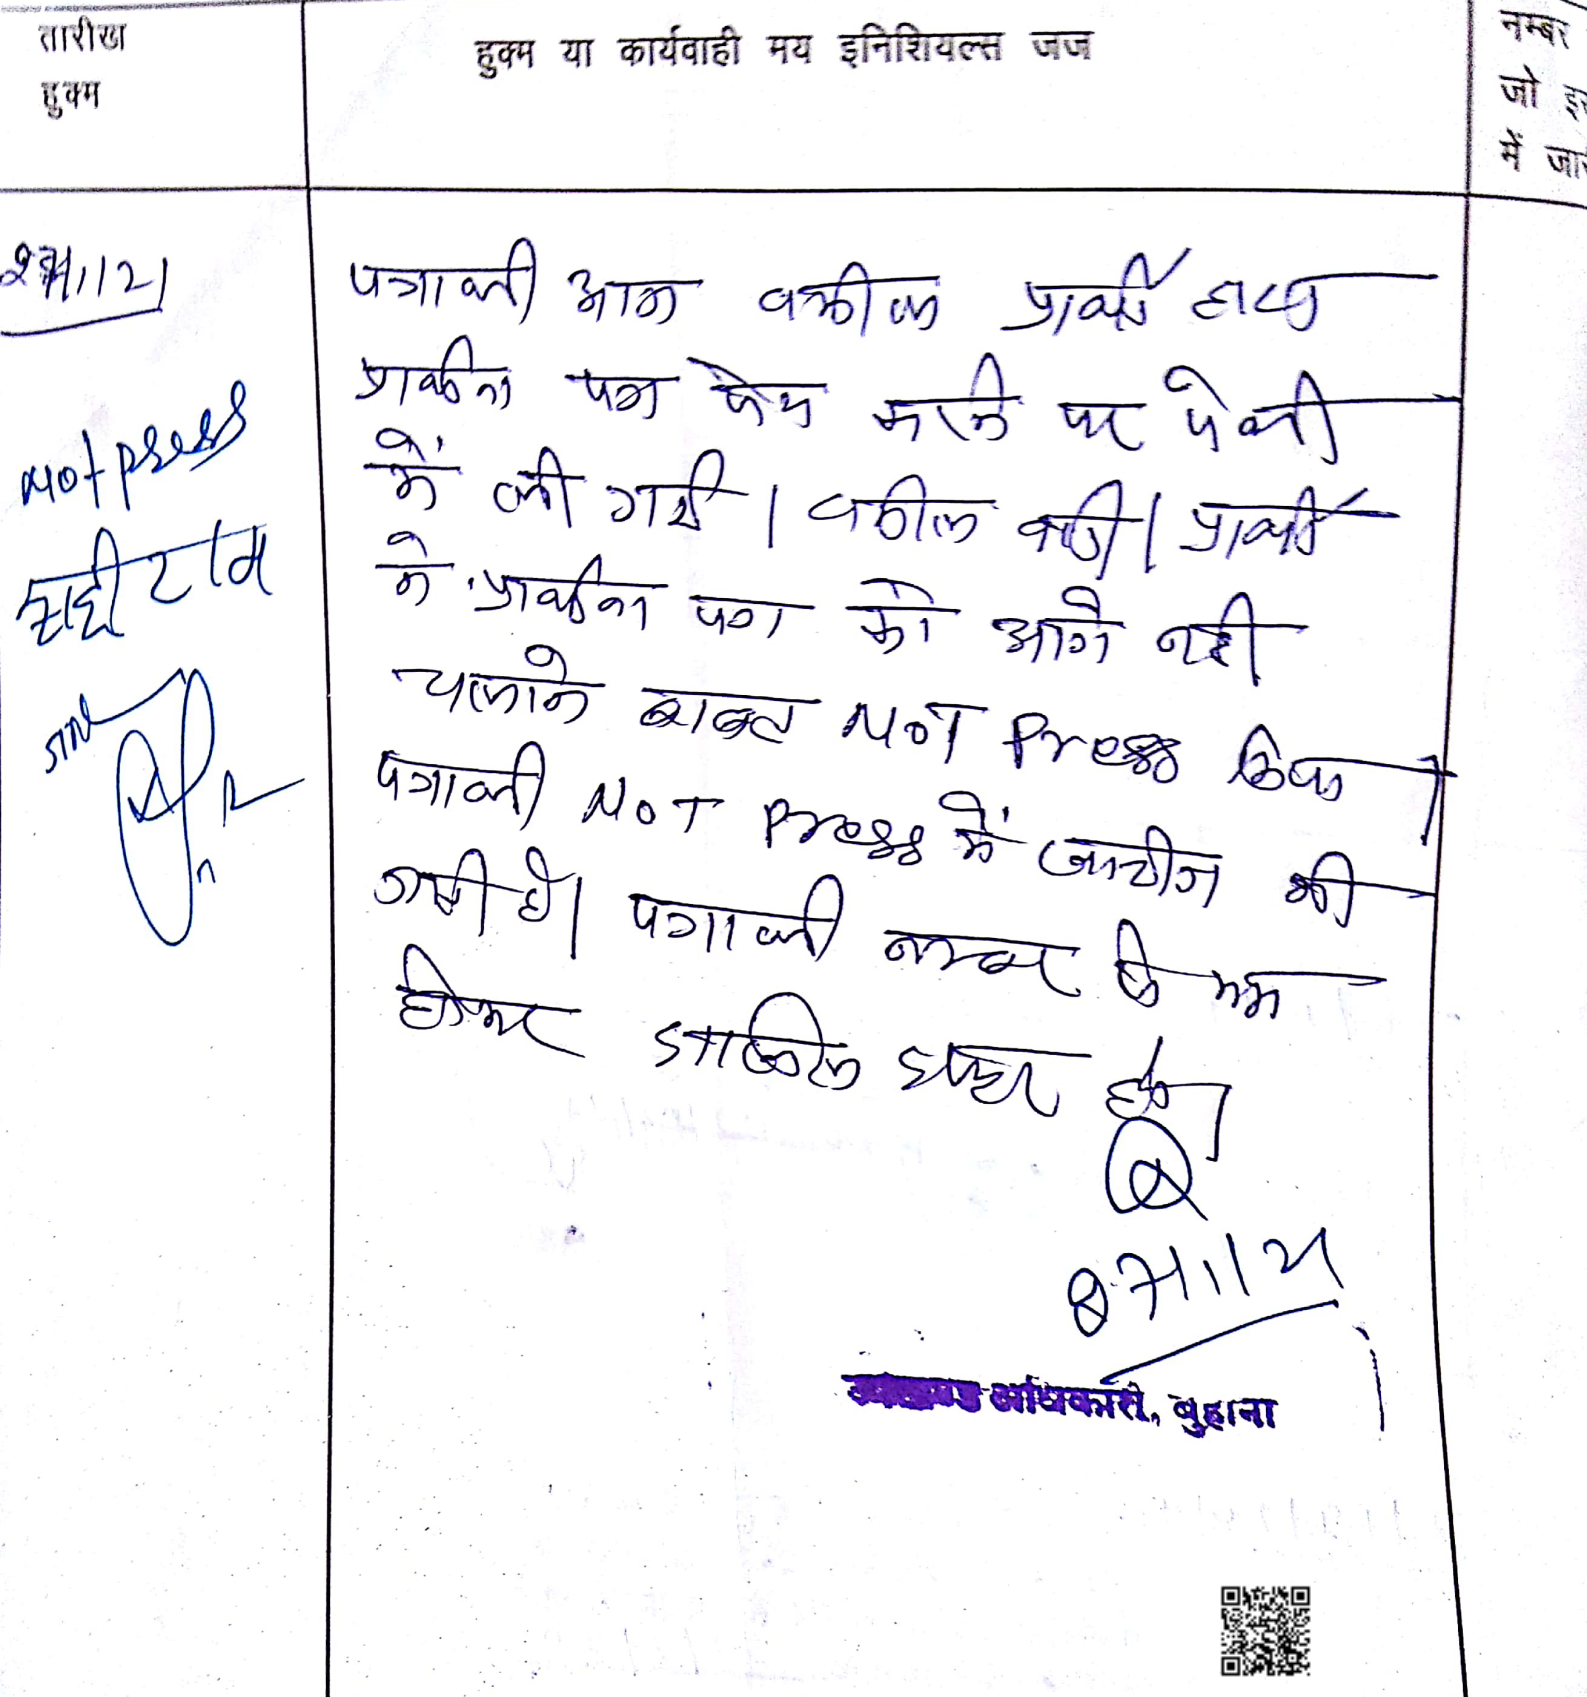 तारीख
हुक्म
हुक्म या कार्यवाही मय इनिशियल्स जज
नम्बर
जो
में
पत्रावली आज वकील प्रार्थी द्वारा
प्रार्थना पत्र पेश करने पर पेशी
में ली गयी। वकील प्रार्थी
ने प्रार्थना पत्र को आगे नही
चलाने बाबत NOT Press किया।
पत्रावली NOT Press में खारीज की
गयी है। पत्रावली नम्बर से कम
होकर दाखिल दफ्तर हो।
Not press
अधिकारी, बुहाना